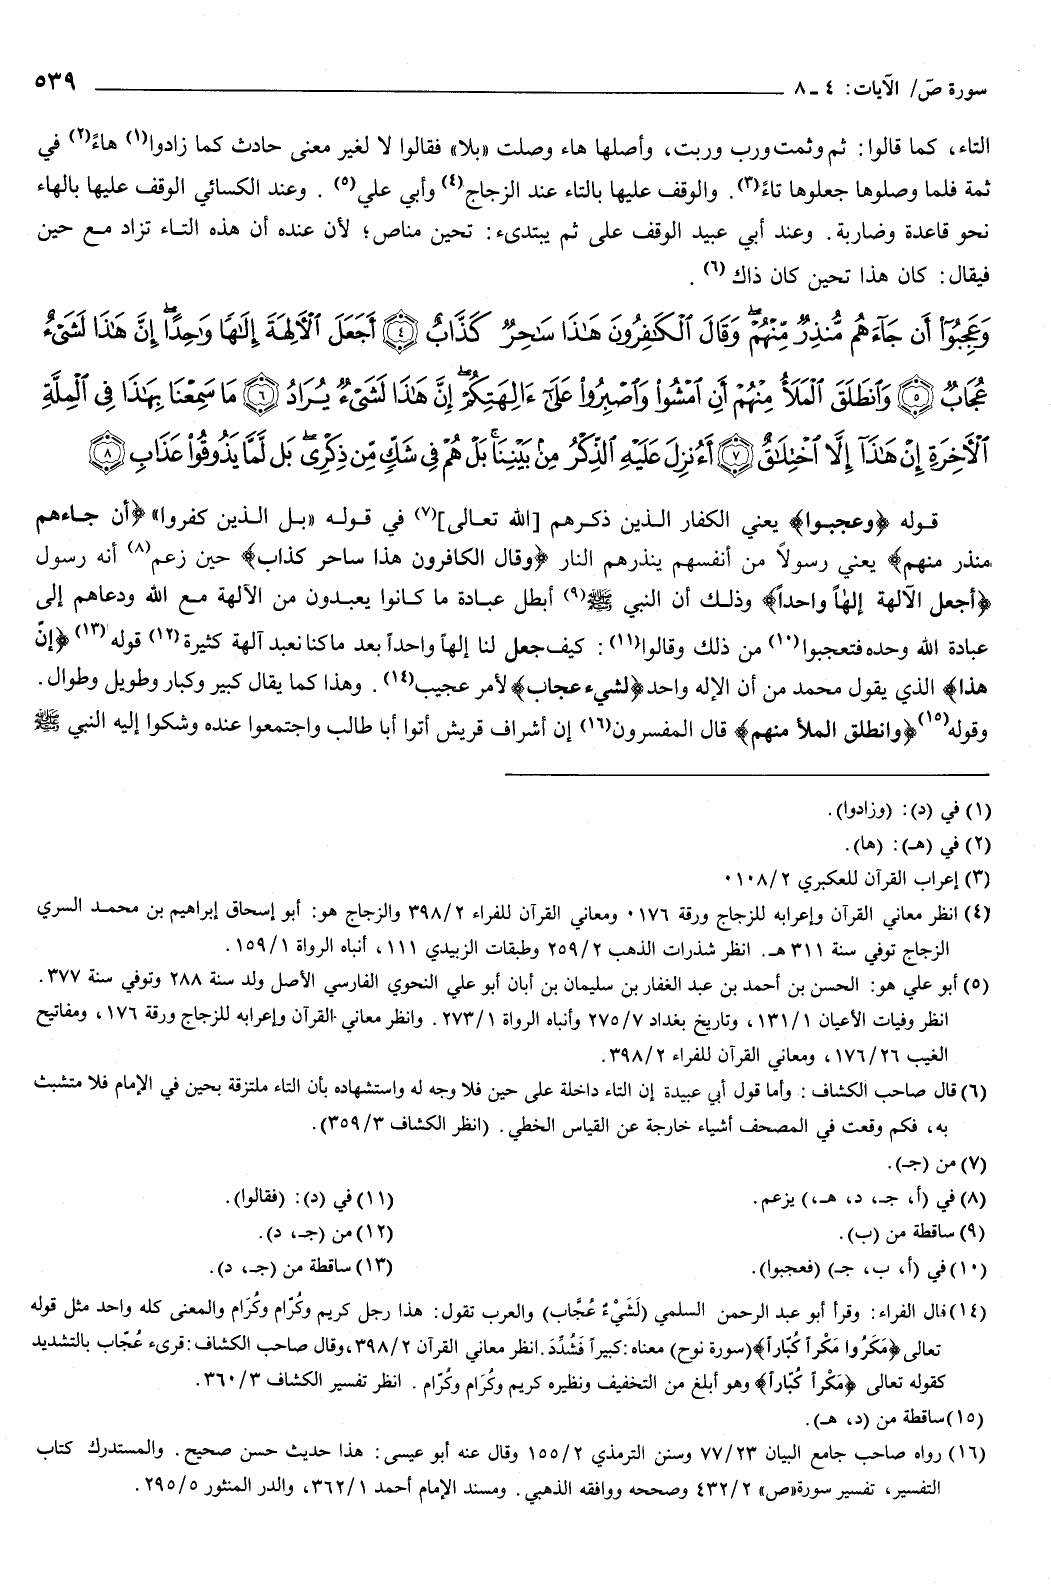 سورة صَ/ الآيات: ٤ ـ ٨ ٥٣٩
التاء، كما قالوا: ثم وثمت ورب وربت، وأصلها هاء وصلت «بلا» فقالوا لا لغير معنى حادث كما زادوا(١) هاءً(٢) في
ثمة فلما وصلوها جعلوها تاءً(٣). والوقف عليها بالتاء عند الزجاج(٤) وأبي علي(٥) . وعند الكسائي الوقف عليها بالهاء
نحو قاعدة وضاربة. وعند أبي عبيد الوقف على ثم يبتدىء: تحين مناص؛ لأن عنده أن هذه التاء تزاد مع حين
فيقال: كان هذا تحين كان ذاك(٦) .
وَعَجِبُوٓا۟ أَن جَآءَهُم مُّنذِرٌ مِّنْهُمْ ۖ وَقَالَ ٱلْكَـٰفِرُونَ هَـٰذَا سَـٰحِرٌ كَذَّابٌ ﴿٤﴾ أَجَعَلَ ٱلْـَٔالِهَةَ إِلَـٰهًا وَٰحِدًا ۖ إِنَّ هَـٰذَا لَشَىْءٌ
عُجَابٌ ﴿٥﴾ وَٱنطَلَقَ ٱلْمَلَأُ مِنْهُمْ أَنِ ٱمْشُوا۟ وَٱصْبِرُوا۟ عَلَىٰٓ ءَالِهَتِكُمْ ۖ إِنَّ هَـٰذَا لَشَىْءٌ يُرَادُ ﴿٦﴾ مَا سَمِعْنَا بِهَـٰذَا فِى ٱلْمِلَّةِ
ٱلْـَٔاخِرَةِ إِنْ هَـٰذَآ إِلَّا ٱخْتِلَـٰقٌ ﴿٧﴾ أَءُنزِلَ عَلَيْهِ ٱلذِّكْرُ مِنۢ بَيْنِنَا ۚ بَلْ هُمْ فِى شَكٍّ مِّن ذِكْرِى ۖ بَل لَّمَّا يَذُوقُوا۟ عَذَابِ ﴿٨﴾
قوله ﴿وعجبوا﴾ يعني الكفار الذين ذكرهم [الله تعالى](٧) في قوله «بل الذين كفروا» ﴿أن جاءهم
منذر منهم﴾ يعني رسولاً من أنفسهم ينذرهم النار ﴿وقال الكافرون هذا ساحر كذاب﴾ حين زعم(٨) أنه رسول
﴿أجعل الآلهة إلهاً واحداً﴾ وذلك أن النبي ﷺ(٩) أبطل عبادة ما كانوا يعبدون من الآلهة مع الله ودعاهم إلى
عبادة الله وحده فتعجبوا(١٠) من ذلك وقالوا(١١) : كيف جعل لنا إلهاً واحداً بعد ما كنا نعبد آلهة كثيرة(١٢) قوله(١٣) ﴿إنّ
هذا﴾ الذي يقول محمد من أن الإله واحد ﴿لشيء عجاب﴾ لأمر عجيب(١٤) . وهذا كما يقال كبير وكبار وطويل وطوال.
وقوله(١٥) ﴿وانطلق الملأ منهم﴾ قال المفسرون(١٦) إن أشراف قريش أتوا أبا طالب واجتمعوا عنده وشكوا إليه النبي ﷺ
(١) في (د): (وزادوا).
(٢) في (هـ): (ها).
(٣) إعراب القرآن للعكبري ١٠٨/٢٠
(٤) انظر معاني القرآن وإعرابه للزجاج ورقة ١٧٦٠ ومعاني القرآن للفراء ٣٩٨/٢ والزجاج هو: أبو إسحاق إبراهيم بن محمد السري
الزجاج توفي سنة ٣١١ هـ. انظر شذرات الذهب ٢٥٩/٢ وطبقات الزبيدي ١١١، أنباه الرواة ١٥٩/١.
(٥) أبو علي هو: الحسن بن أحمد بن عبد الغفار بن سليمان بن أبان أبو علي النحوي الفارسي الأصل ولد سنة ٢٨٨ وتوفي سنة ٣٧٧.
انظر وفيات الأعيان ١٣١/١، وتاريخ بغداد ٢٧٥/٧ وأنباه الرواة ٢٧٣/١. وانظر معاني القرآن وإعرابه للزجاج ورقة ١٧٦، ومفاتيح
الغيب ١٧٦/٢٦، ومعاني القرآن للفراء ٣٩٨/٢.
(٦) قال صاحب الكشاف: وأما قول أبي عبيدة إن التاء داخلة على حين فلا وجه له واستشهاده بأن التاء ملتزقة بحين في الإمام فلا متشبث
به، فكم وقعت في المصحف أشياء خارجة عن القياس الخطي. (انظر الكشاف ٣٥٩/٣).
(٧) من (جـ).
(٨) في (أ، جـ، د، هـ،) يزعم. (١١) في (د): (فقالوا).
(٩) ساقطة من (ب). (١٢) من (جـ، د).
(١٠) في (أ، ب، جـ) (فعجبوا). (١٣) ساقطة من (جـ، د).
(١٤) قال الفراء: وقرأ أبو عبد الرحمن السلمي (لَشَيْءٌ عُجَّاب) والعرب تقول: هذا رجل كريم وكُرّام وكُرَام والمعنى كله واحد مثل قوله
تعالى ﴿مَكَرُوا مَكْراً كُبّاراً﴾ (سورة نوح) معناه: كبيراً فَشُدِّدَ. انظر معاني القرآن ٣٩٨/٢، وقال صاحب الكشاف: قرىء عُجّاب بالتشديد
كقوله تعالى ﴿مَكْراً كُبّاراً﴾ وهو أبلغ من التخفيف ونظيره كريم وكُرَام وكُرّام . انظر تفسير الكشاف ٣٦٠/٣.
(١٥) ساقطة من (د، هـ).
(١٦) رواه صاحب جامع البيان ٧٧/٢٣ وسنن الترمذي ١٥٥/٢ وقال عنه أبو عيسى: هذا حديث حسن صحيح. والمستدرك كتاب
التفسير، تفسير سورة «ص» ٤٣٢/٢ وصححه ووافقه الذهبي. ومسند الإمام أحمد ٣٦٢/١، والدر المنثور ٢٩٥/٥.